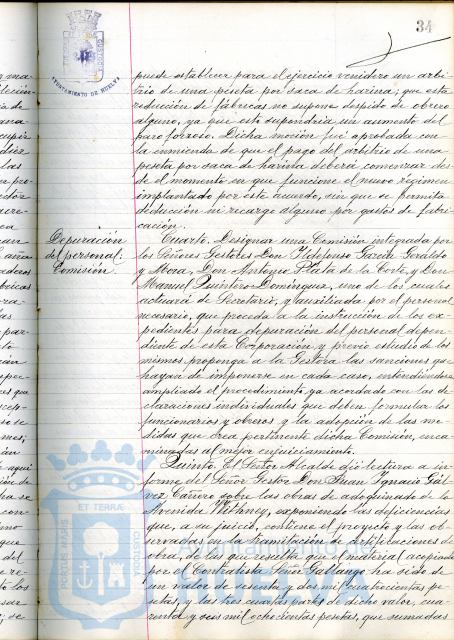 34
AYUNTAMIENTO DE HUELVA
puede establecer para el ejercicio venidero un arbi-
trio de una peseta por saca de harina; que esta
reducción de fábricas no supone despido de obrero
alguno, ya que esto supondría un aumento del
paro forzoso. Dicha moción fué aprobada con
la enmienda de que el pago del arbitrio de una
peseta por saca de harina deberá comenzar des-
de el momento en que funcione el nuevo régimen
implantado por este acuerdo, sin que se permita
deducción ni recargo alguno por gastos de fabri-
cación.
Depuración
del personal:
Comisión.
Cuarto. Designar una Comisión integrada por
los Señores Gestores Don Ildefonso García Geraldo
y Mora, Don Antonio Plata de la Corte, y Don
Manuel Quintero Domínguez, uno de los cuales
actuará de Secretario, y auxiliada por el personal
necesario, que proceda a la instrucción de los ex-
pedientes para depuración del personal depen-
diente de esta Corporación, y previo estudio de los
mismos, proponga a la Gestora las sanciones que
hayan de imponerse en cada caso, entendiéndose
ampliado el procedimiento, ya acordado con las de-
claraciones individuales que deben formular los
funcionarios y obreros y la adopción de las me-
didas que crea pertinente dicha Comisión, enca-
minadas al mejor enjuiciamiento.
Quinto. El Señor Alcalde dió lectura a in-
forme del Señor Gestor Don Juan Ignacio Gál-
vez Cañero sobre las obras de adoquinado de la
Avenida Wethney, exponiendo las deficiencias
que, a su juicio, contiene el proyecto y las ob-
servadas en la tramitación de certificaciones de
obra, de las que resulta que el material acopiado
por el Contratista Señor Gallango ha sido de
un valor de sesenta y dos mil cuatrocientas pe-
setas, y las tres cuartas partes de dicho valor, cua-
renta y seis mil ochocientas pesetas, que sumadas
ET TERRAE
PORTUS MARIS
CUSTODIA
HUELVA